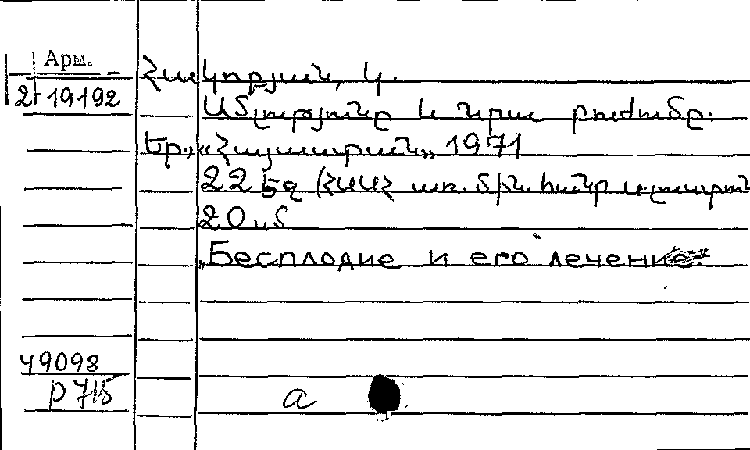 Арм.
2+19192
Հակոբյան, Կ.
Ամլությունը և նրա բուժումը.
Եր., «Հայաստան», 1971
22 էջ (ՀՍՍՀ առ. մին. հանր.
20 սմ
„Бесплодие и его лечение.
49098
р 715
а